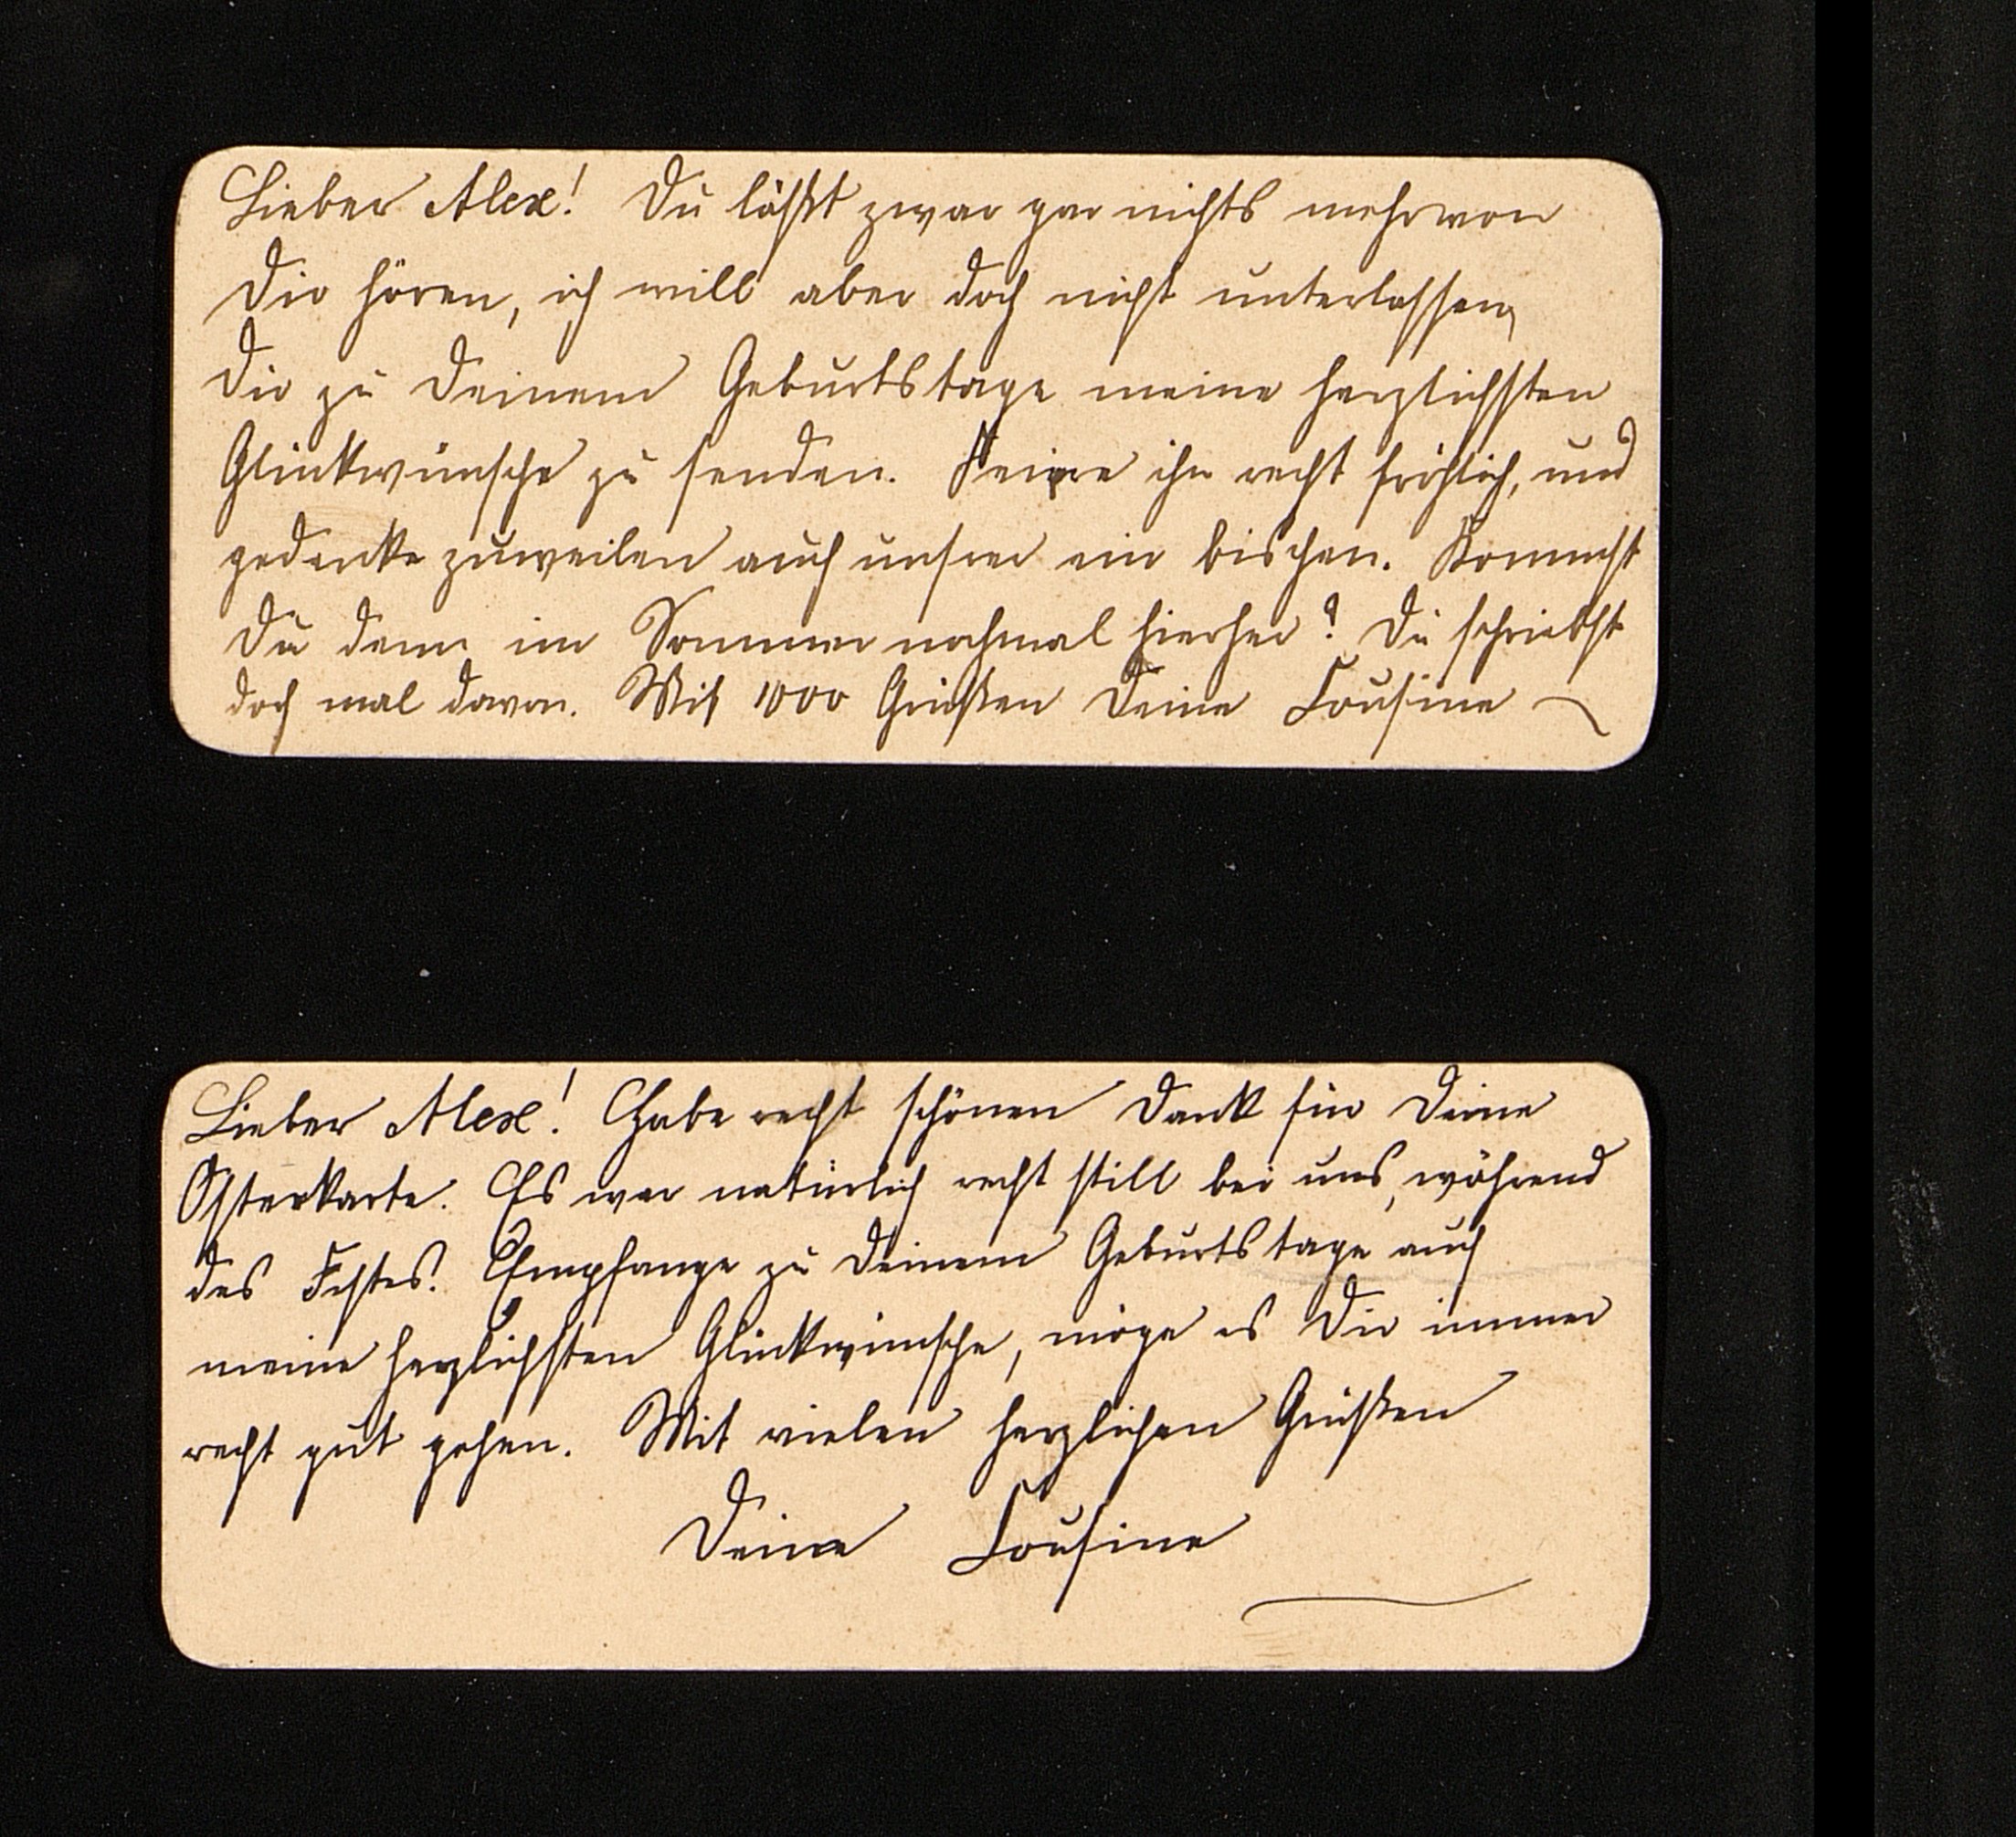 Lieber Alex! Du läßt zwar gar nichts mehr von
Dir hören, ich will aber doch nicht unterlassen,
Dir zu Deinem Geburtstage meine herzlichsten
Glückwünsche zu senden. Feiere ihn recht fröhlich, und
gedenke zuweilen auch unsrer ein bischen. Kommst
Du denn im Sommer nochmal hierher? Du schriebst
doch mal davon. Mit 1000 Grüßen Deine Cousine
Lieber Alex! Habe recht schönen Dank für Deine
Osterkarte. Es war natürlich recht still bei uns, während
des Festes. Empfange zu Deinem Geburtstage auch
meine herzlichsten Glückwünsche, möge es Dir immer
recht gut gehen. Mit vielen herzlichen Grüßen
Deine Cousine